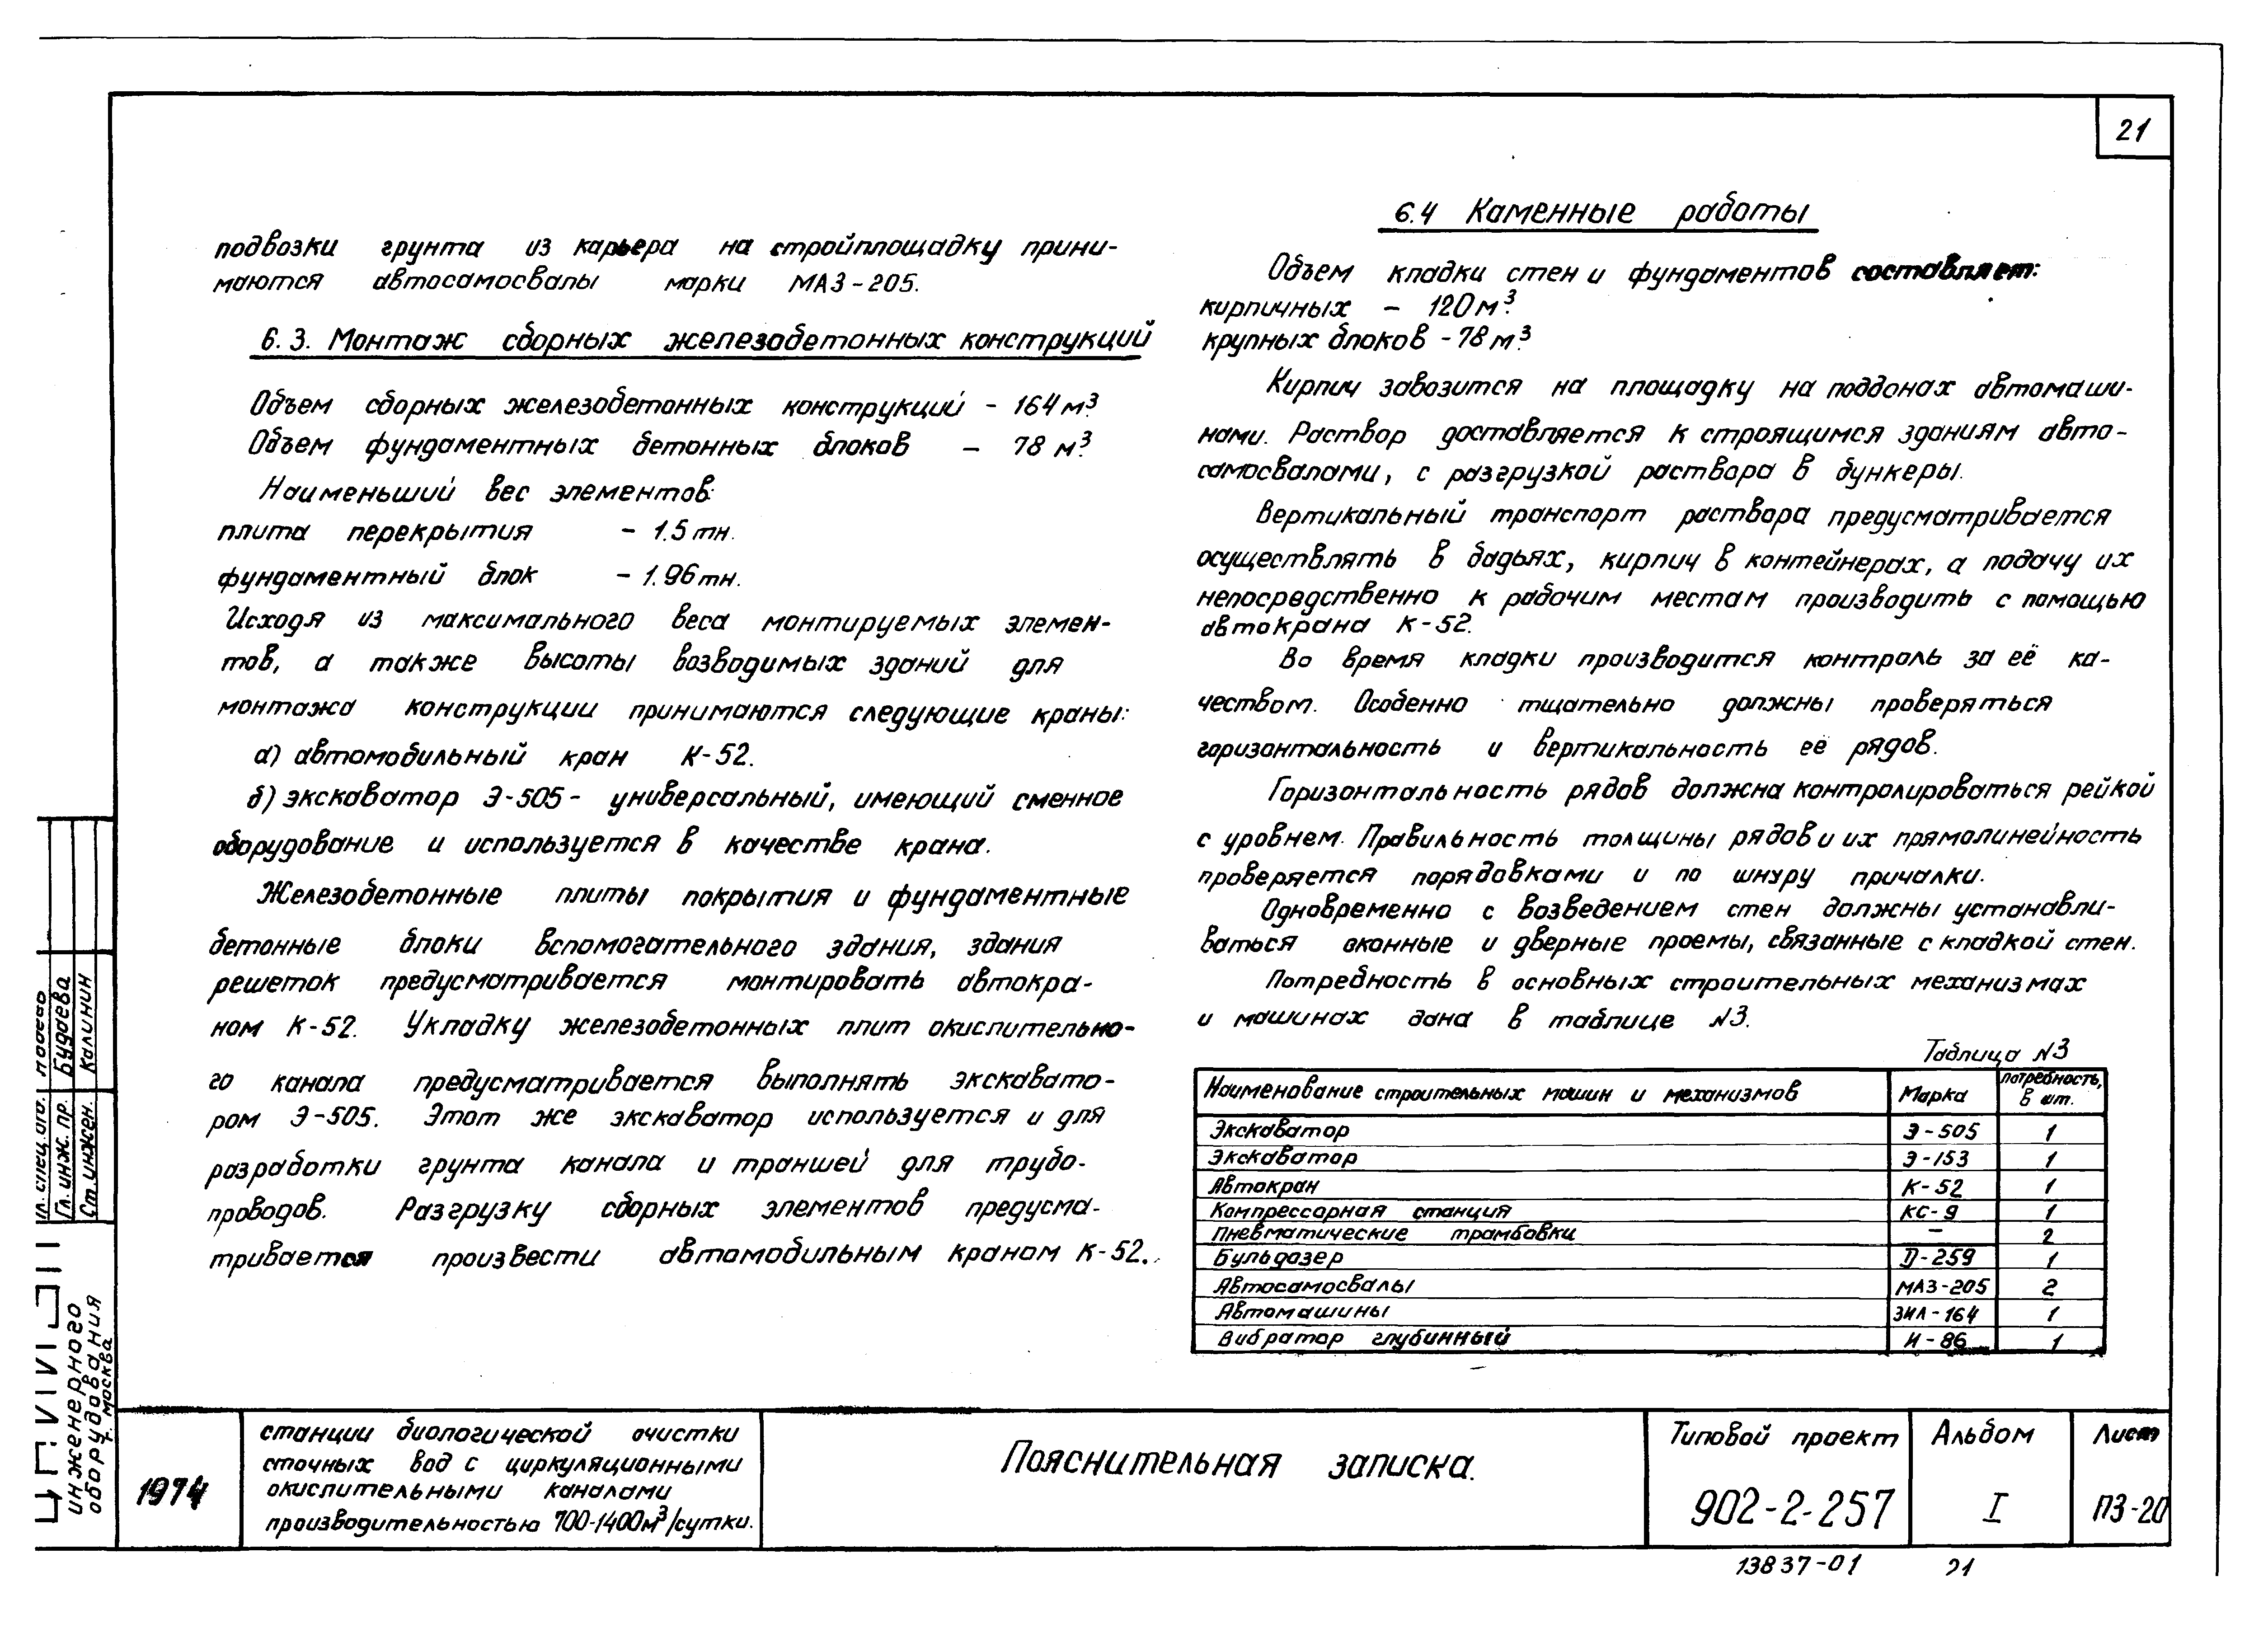 21
подвозки грунта из карьера на стройплощадку прини-
маются автосамосвалы марки МАЗ-205.
6.3. Монтаж сборных железобетонных конструкций
Объем сборных железобетонных конструкций - 164 м³.
Объем фундаментных бетонных блоков - 78 м³.
Наименьший вес элементов:
плита перекрытия - 1.5 тн.
фундаментный блок - 1.96 тн.
Исходя из максимального веса монтируемых элемен-
тов, а также высоты возводимых зданий для
монтажа конструкции принимаются следующие краны:
а) автомобильный кран К-52.
б) экскаватор Э-505 - универсальный, имеющий сменное
оборудование и используется в качестве крана.
Железобетонные плиты покрытия и фундаментные
бетонные блоки вспомогательного здания, здания
решеток предусматривается монтировать автокра-
ном К-52. Укладку железобетонных плит окислительно-
го канала предусматривается выполнять экскавато-
ром Э-505. Этот же экскаватор используется и для
разработки грунта канала и траншей для трубо-
проводов. Разгрузку сборных элементов предусма-
тривается произвести автомобильным краном К-52.
6.4 Каменные работы
Объем кладки стен и фундаментов составляет:
кирпичных - 120 м³.
крупных блоков - 78 м³.
Кирпич завозится на площадку на поддонах автомаши-
нами. Раствор доставляется к строящимся зданиям авто-
самосвалами, с разгрузкой раствора в бункеры.
Вертикальный транспорт раствора предусматривается
осуществлять в бадьях, кирпич в контейнерах, а подачу их
непосредственно к рабочим местам производить с помощью
автокрана К-52.
Во время кладки производится контроль за её ка-
чеством. Особенно тщательно должны проверяться
горизонтальность и вертикальность её рядов.
Горизонтальность рядов должна контролироваться рейкой
с уровнем. Правильность толщины рядов и их прямолинейность
проверяется порядовками и по шнуру причалки.
Одновременно с возведением стен должны устанавли-
ваться оконные и дверные проемы, связанные с кладкой стен.
Потребность в основных строительных механизмах
и машинах дана в таблице N3.
Таблица N3
Наименование строительных машин и механизмов Марка потребность, в шт.
Экскаватор Э-505 1
Экскаватор Э-153 1
Автокран К-52 1
Компрессорная станция КС-9 1
Пневматические трамбовки - 2
Бульдозер Д-259 1
Автосамосвалы МАЗ-205 2
Автомашины ЗИЛ-164 1
Вибратор глубинный И-86 1
Гл. инж. пр. Будаева
Ст. инжен. Калинин
инженерного
оборудования
г. Москва
1974
станции биологической очистки
сточных вод с циркуляционными
окислительными каналами
производительностью 700-1400м³/сутки.
Пояснительная записка.
Типовой проект
902-2-257
Альбом
I
Лист
ПЗ-20
13837-01 21